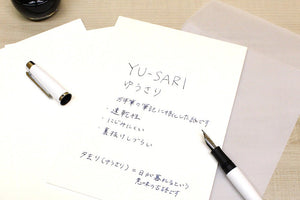 YU-SARI
ゆうさり
万年筆の筆記に特化した紙です
・速乾性
・にじみにくい
・裏抜けしづらい
夕さり(ゆうさり)=日が暮れるという
意味の古語です